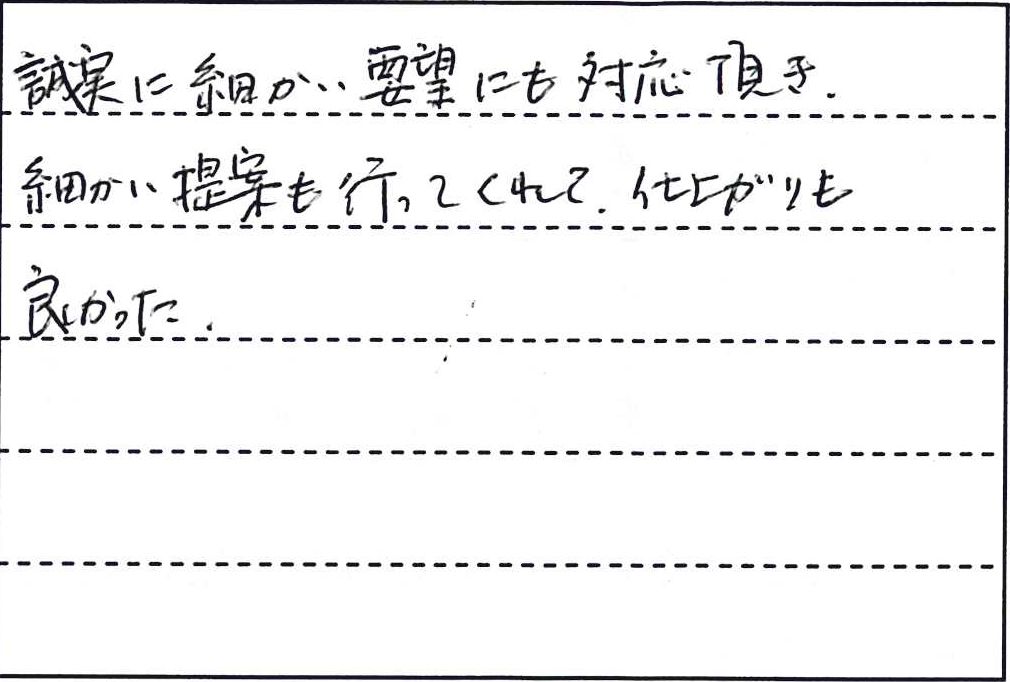 誠実に細かい要望にも対応頂き、
細かい提案も行ってくれて、仕上がりも
良かった。